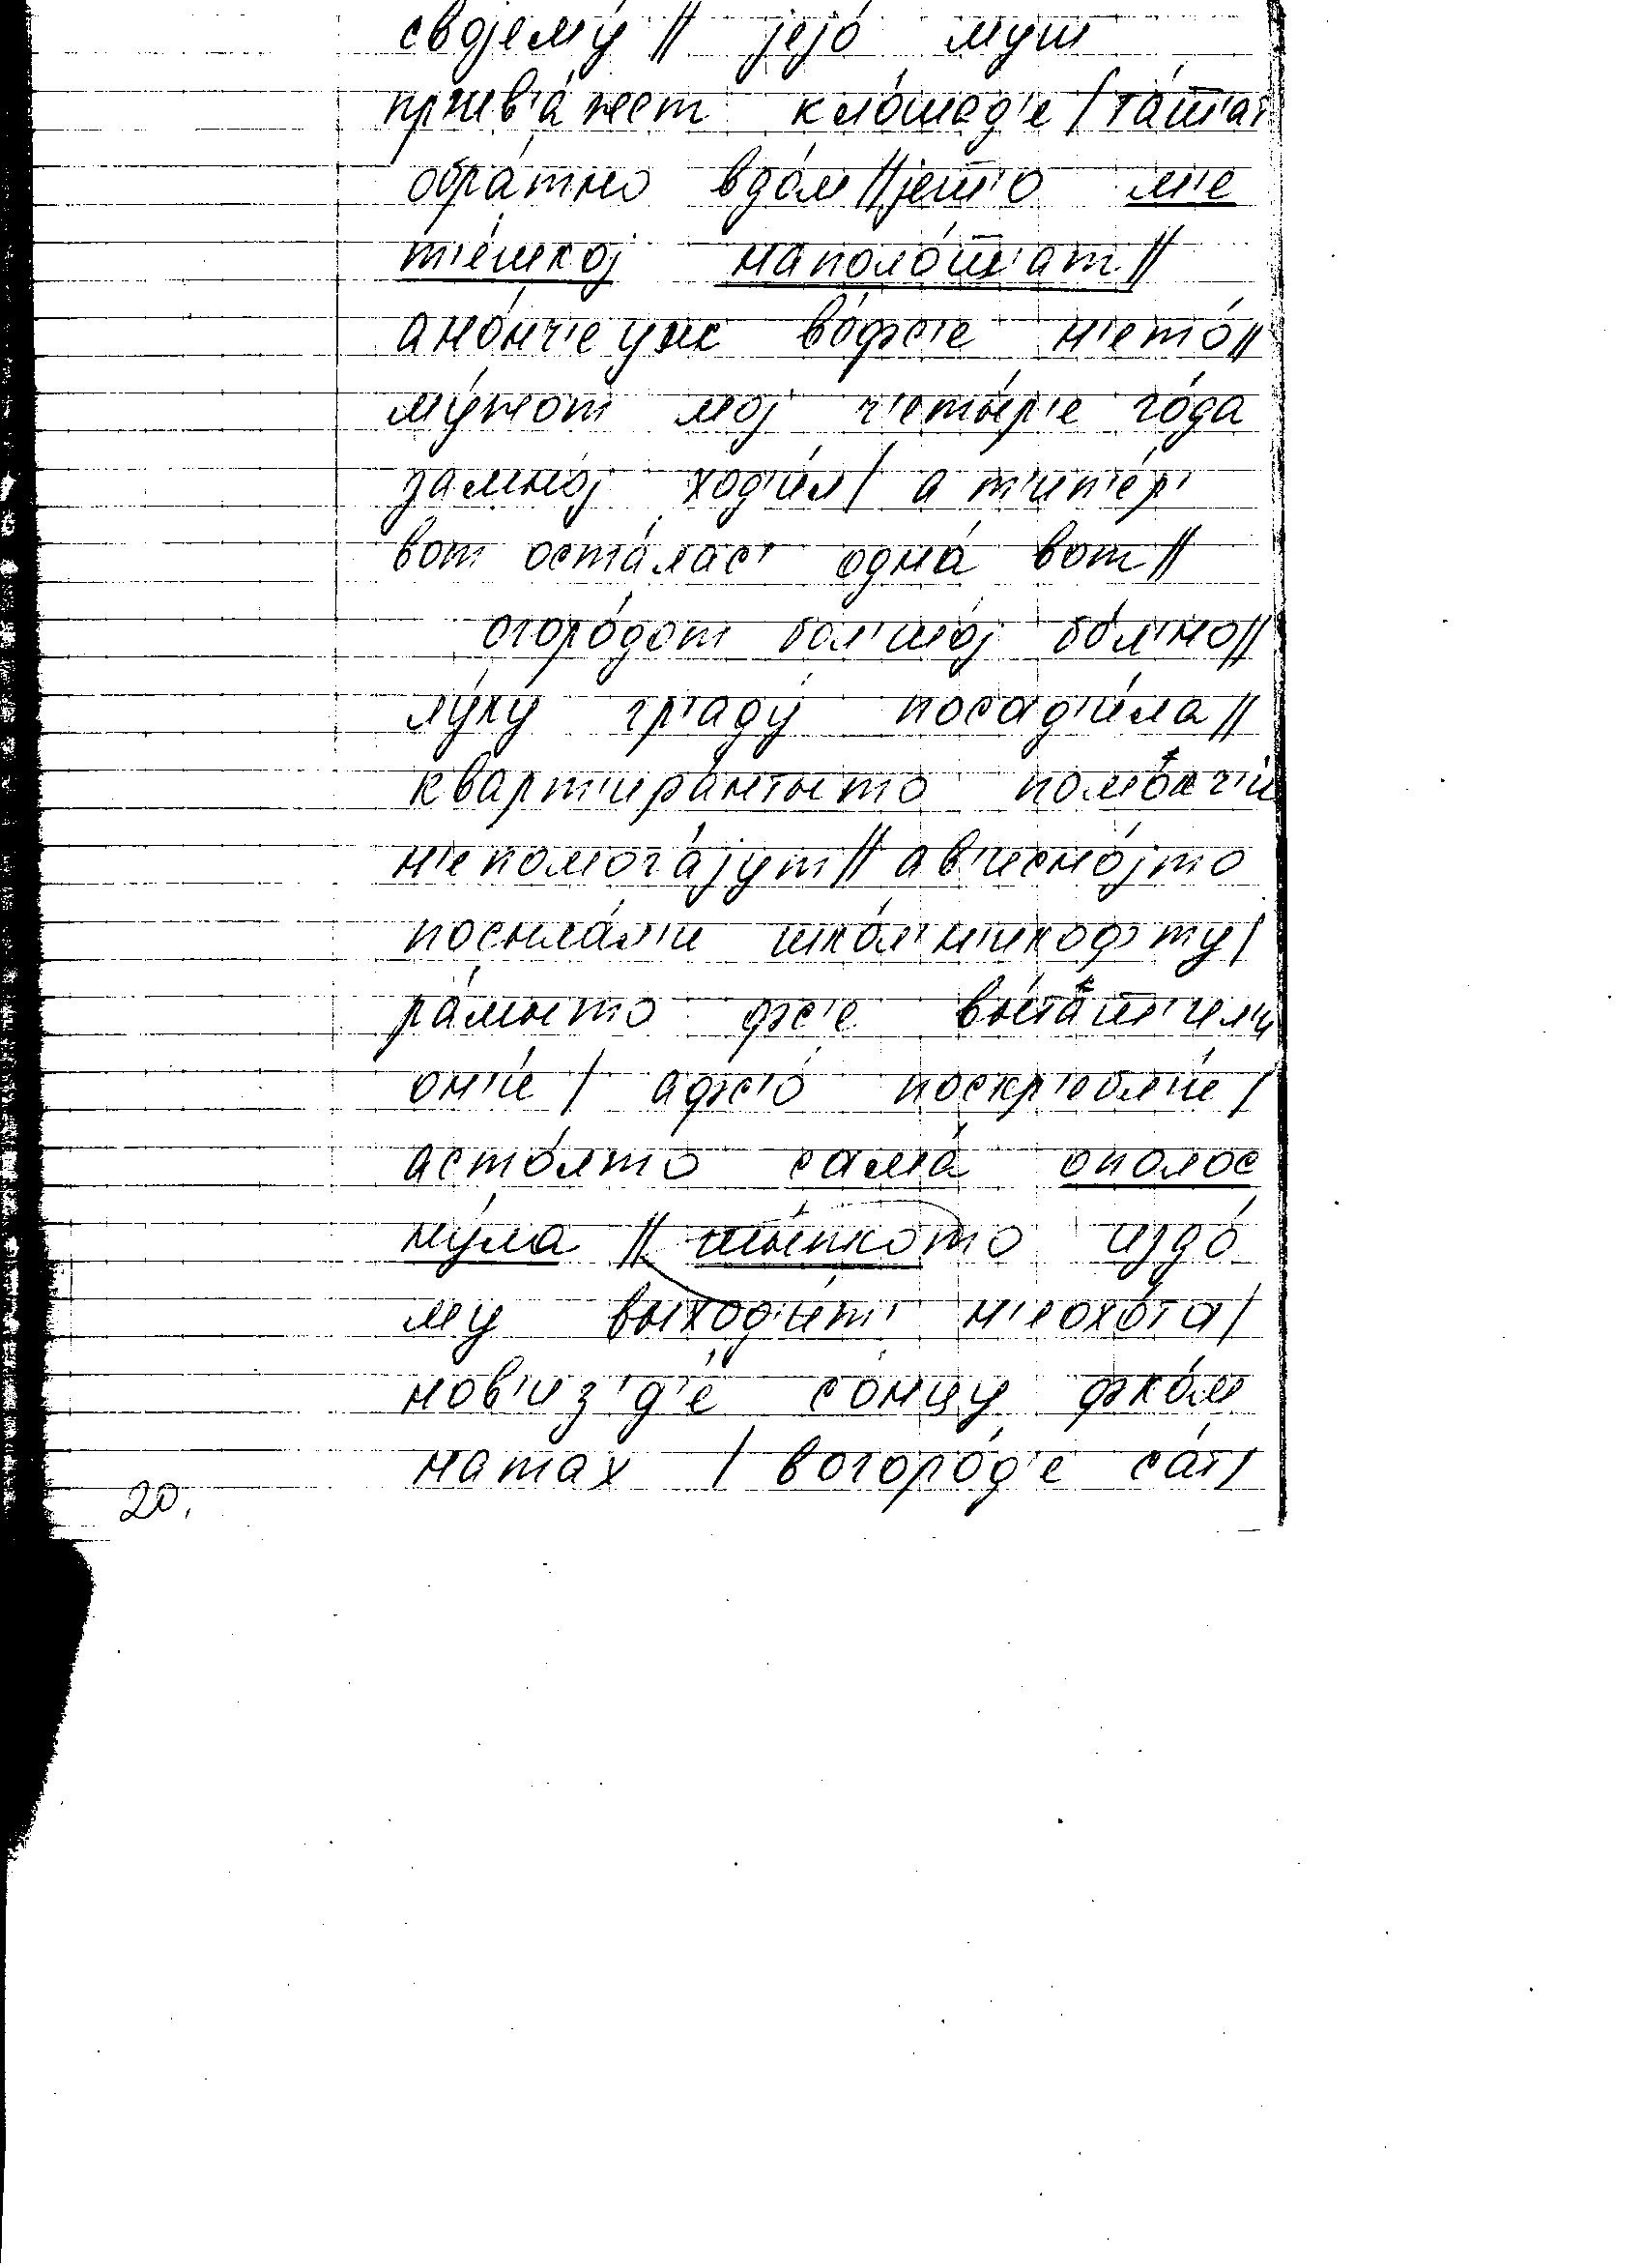 својему́ // јејо́ муш
пр'ив'а́жет кло́шад'е / та́ш'ат
обра́тно вдо́м // јеш'о м'е
т'е́шкој наполо́ш'ат //
ано́нч'е уж во́фс'е н'ето́ //
му́жот мој ч'еты́р'е го́да
замно́ј ход'и́л / а т'ип'е́р'
вот оста́лас' одна́ вот //
огоро́дот бол'шо́ј бо́л'но //
лу́ку гр'аду́ посад'и́ла //
кварт'ира́нтыто помо́ч'и
н'епомога́јут // ав'исно́јто
посыла́л'и шко́л'н'икофту /
ра́мыто фс'е вы́таш'ил'и
он'и́ / афс'о́ поскр'ебл'и́ /
асто́лто сама́ ополос
ну́ла // шы́пкото издо́
му выход'и́т' н'еохо́та /
нов'из'д'е́ со́нцу фко́м
натах / вогоро́д'е са́т /
20.